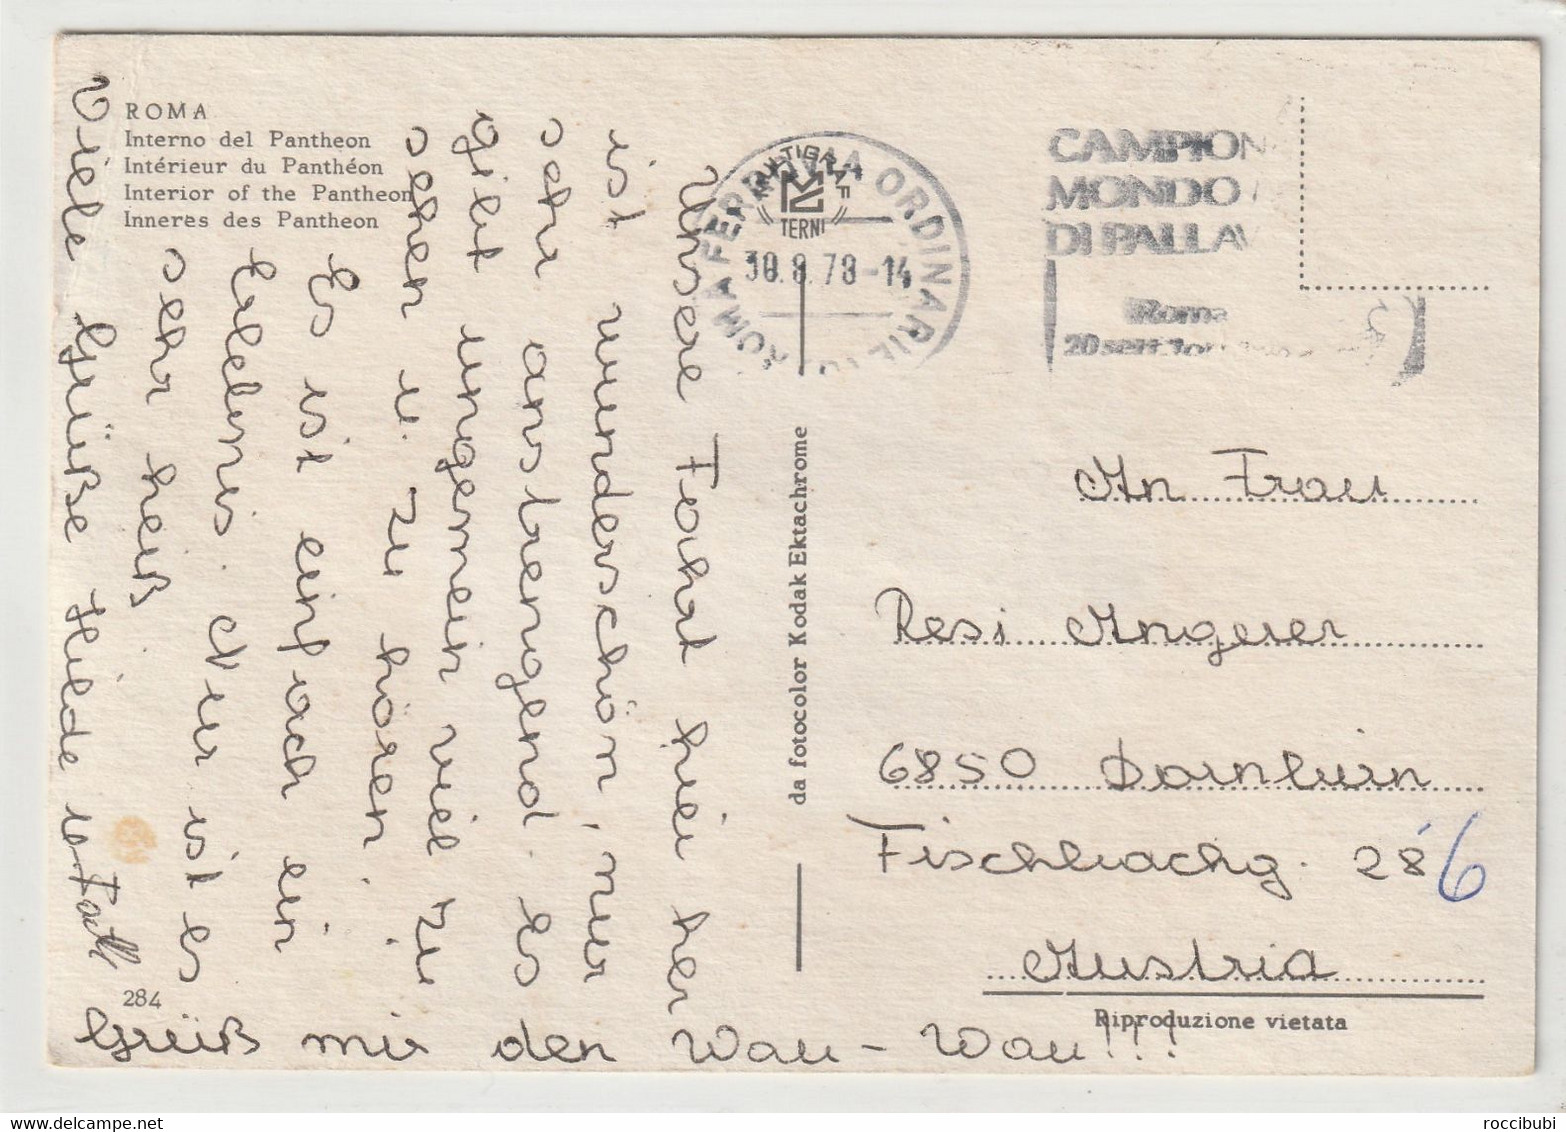 ROMA
Interno del Pantheon
Intérieur du Panthéon
Interior of the Pantheon
Inneres des Pantheon
Unsere Fahrt hier her
ist wunderschön, nur
sehr anstrengend. Es
gibt ungemein viel zu
sehen u. zu hören.
Es ist einfach ein
Erlebnis. Nur ist es
sehr heiß
Viele Grüße Hilde u.
Grüß mir den Wau-Wau!!!
284
da fotocolor Kodak Ektachrome
MULTIGRAF
TERNI
ROMA FERROVIA ORDINARIE
30.8.78-14
CAMPION
MONDO
DI PALLAV
Roma
20 sett.
An Frau
Resi Angerer
6850 Dornbirn
Fischbachg. 28
6
Austria
Riproduzione vietata
roccibubi
www.delcampe.net